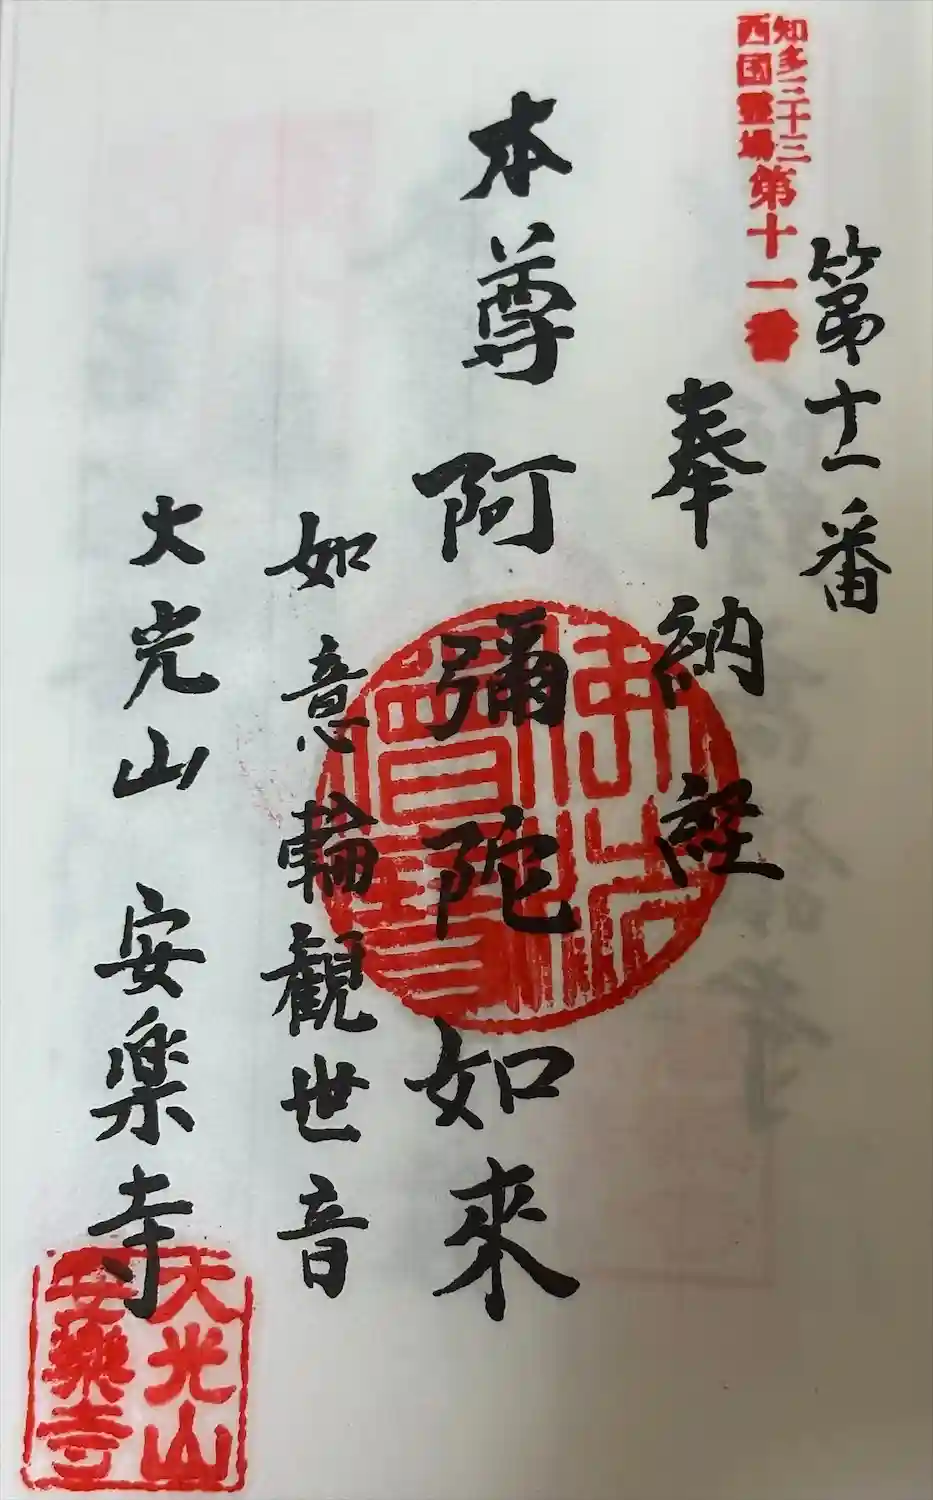 知多三十三
西国霊場
第十一番
第十一番
奉納経
本尊 阿彌陀如來
如意輪観世音
天光山 安楽寺
佛法
僧寶
天光山
安樂寺